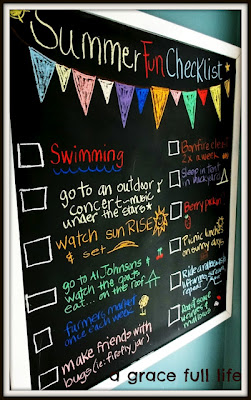 Summer Fun Checklist
Swimming
go to an outdoor
concert-music
under the stars
watch sun RISE
& set
go to Al Johnsons
watch the goats
eat... on the roof
farmers market
once each week
make friends with
bugs (i.e. firefly jar)
Bonfire
2x a week
Sleep in tent
in backyard
Berry pickin
Picnic lunches
on sunny days
Ride
repeat
a grace full life